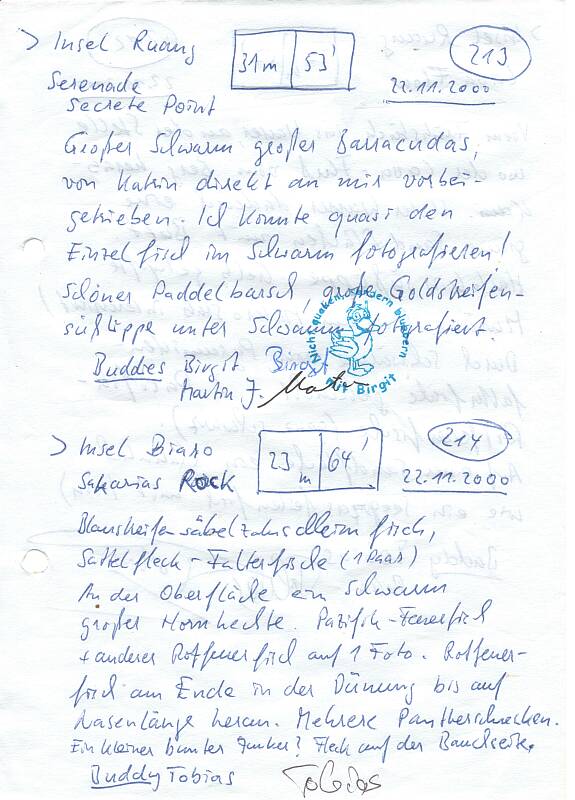 > Insel Ruang
31m 53'
213
22.11.2000
Serenade
Secrete Point
Großer Schwarm großer Barracudas,
von Katrin direkt an mir vorbei-
getrieben. Ich konnte quasi den
Einzelfisch im Schwarm fotografieren!
Schöner Paddelbarsch, große Goldstreifen-
süßlippe unter Schwarm fotografiert.
Nicht quaken, sondern blubbern
mit Birgit
Buddies Birgit Birgit
Martin J. Martin
> Insel Biaro
23m 64'
214
22.11.2000
Sakarias Rock
Blaustreifensäbelzahnschleimfisch,
Sattelfleck-Falterfische (1 Paar)
An der Oberfläche ein Schwarm
großer Hornhechte. Pazifik-Feuerfisch
+ anderer Rotfeuerfisch auf 1 Foto. Rotfeuer-
fisch am Ende in der Dünung bis auf
Nasenlänge heran. Mehrere Pantherschnecken.
Ein kleiner bunter Junker? Fleck auf der Bauchseite.
Buddy Tobias Tobias